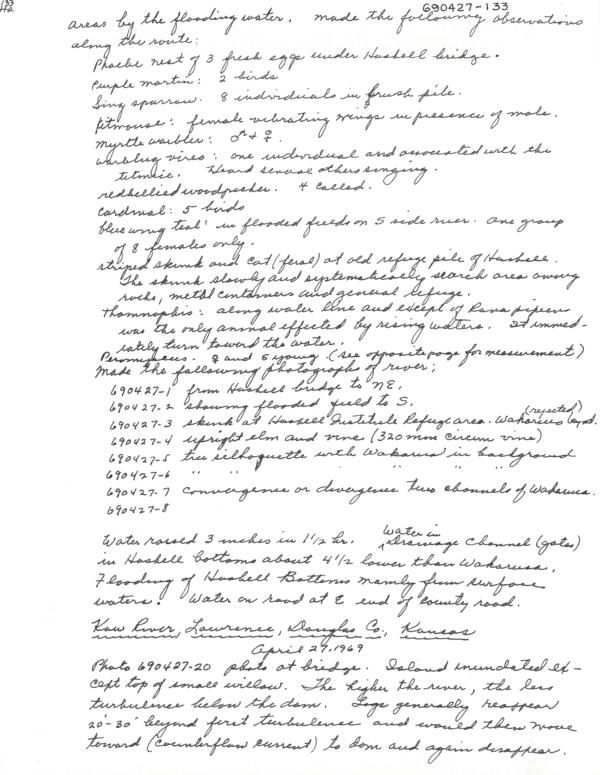 133
690427-133
areas by the flooding water. Made the following observations
along the route:
Phoebe nest of 3 fresh eggs under Haskell bridge.
Purple martin: 2 birds
Song sparrow. 8 individuals in brush pile.
titmouse: female vibrating wings in presence of male.
Myrtle warbler: ♂ + ♀.
warbling vireo: one individual and associated with the
titmice. Heard several others singing.
redbellied woodpecker. 4 called.
Cardinal: 5 birds
blue wing teal: in flooded fields on S side river. One group
of 8 females only.
striped skunk and cat (feral) at old refuge pile of Haskell.
The skunk slowly and systematically search area among
rocks, metal containers and general refuge.
Thamnophis: along water line and except of Rana pipiens
was the only animal effected by rising waters. It immed-
iately turn toward the water.
Peromyscus. ♀ and 6 young (see opposite page for measurement)
Made the following photographs of river;
690427-1 from Haskell bridge to NE.
690427-2 showing flooded field to S.
690427-3 skunk at Haskell Institute Refuge area. Wakarusa (rejected)
690427-4 upright elm and vine (320 mm circum vine)
690427-5 tree silhoquette with Wakarusa in background
690427-6 " " " " "
690427-7 convergence or divergence two channels of Wakarusa.
690427-8
Water raised 3 inches in 1 1/2 hr. Water in Drainage Channel (gates)
in Haskell bottoms about 4 1/2 lower than Wakarusa.
Flooding of Haskell Bottoms mainly from surface
waters. Water on road at E end of county road.
Kaw River, Lawrence, Douglas Co., Kansas
April 27, 1969
Photo 690427-20 photo at bridge. Island inundated ex-
cept top of small willow. The higher the river, the less
turbulence below the dam. Logs generally reappear
20'-30' beyond first turbulence and would then move
toward (counterflow current) to dam and again disappear.